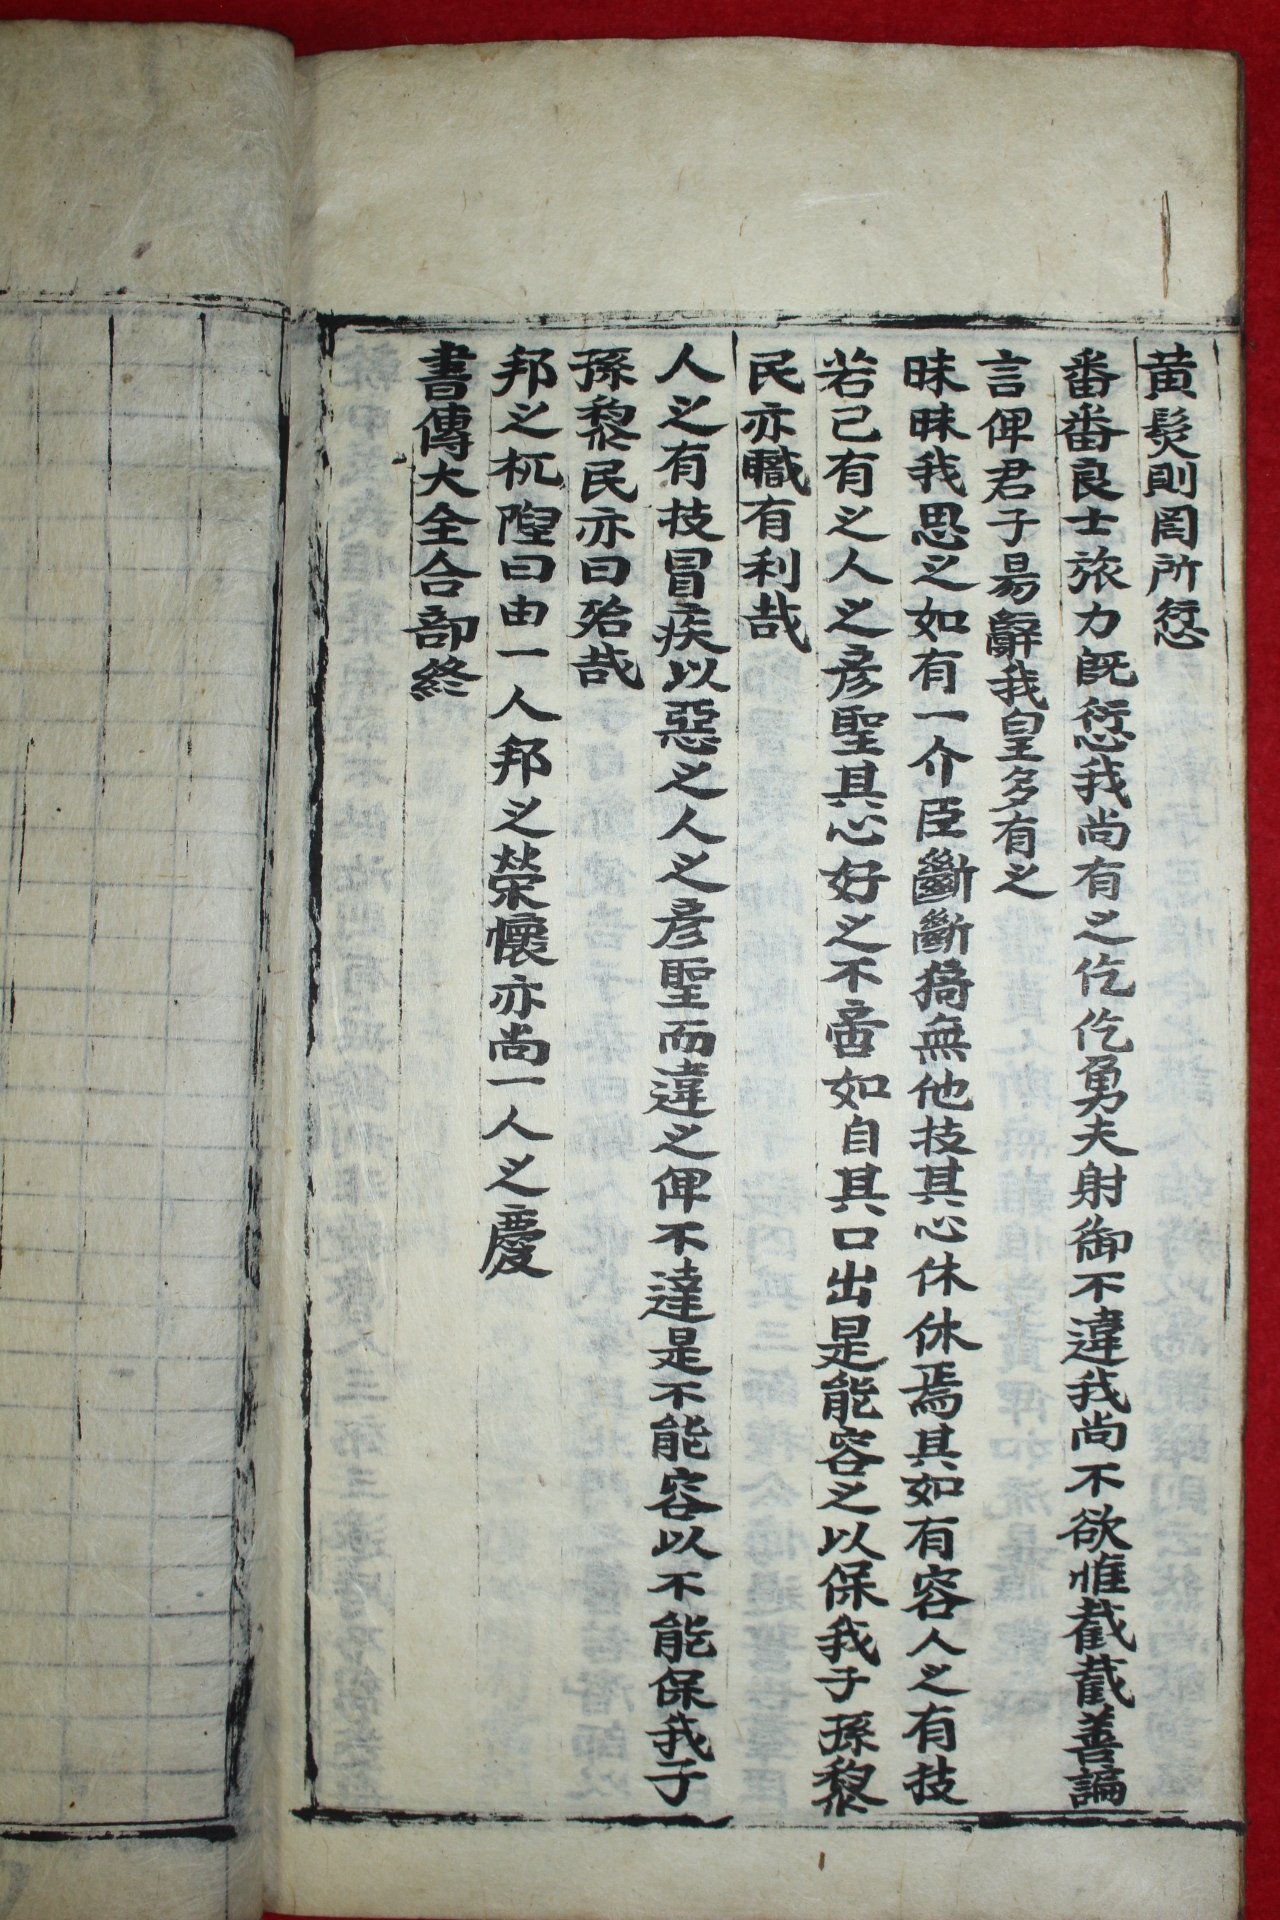 黄髮則罔所愆
番番良士旅力既愆我尚有之仡仡勇夫射御不違我尚不欲惟截截善諞
言俾君子易辭我皇多有之
昧昧我思之如有一介臣斷斷猗無他技其心休休焉其如有容人之有技
若己有之人之彦聖其心好之不啻如自其口出是能容之以保我子孫黎
民亦職有利哉
人之有技冒疾以惡之人之彦聖而違之俾不達是不能容以不能保我子
孫黎民亦曰殆哉
邦之杌隉曰由一人邦之榮懷亦尚一人之慶
書傳大全合部終